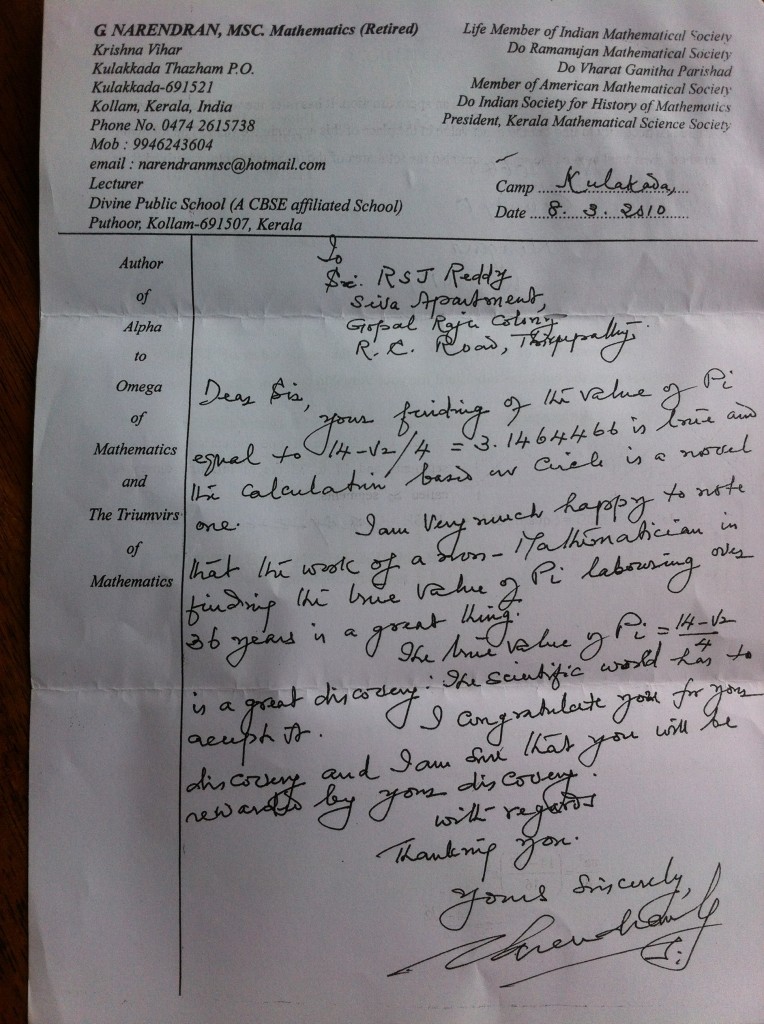 G. NARENDRAN, MSC. Mathematics (Retired)
Krishna Vihar
Kulakkada Thazham P.O.
Kulakkada-691521
Kollam, Kerala, India
Phone No. 0474 2615738
Mob : 9946243604
email : narendranmsc@hotmail.com
Lecturer
Divine Public School (A CBSE affiliated School)
Puthoor, Kollam-691507, Kerala
Life Member of Indian Mathematical Society
Do Ramanujan Mathematical Society
Do Vharat Ganitha Parishad
Member of American Mathematical Society
Do Indian Society for History of Mathematics
President, Kerala Mathematical Science Society
Camp Kulakada,
Date 8. 3. 2010
Author
of
Alpha
to
Omega
of
Mathematics
and
The Triumvirs
of
Mathematics
To
Sri. RSJ Reddy
Siva Apartment,
Gopal Raju Colony
R. C. Road,
Dear Sir,
your finding of the value of Pi
equal to 14-√2/4 = 3.1464466 is true and
the calculation based on circle is a novel
one.
I am very much happy to note
that the work of a non-Mathematician in
finding the true value of Pi labouring over
36 years is a great thing.
The true value of Pi = 14-√2/4
is a great discovery. The scientific world has to
accept it.
I congratulate you for your
discovery and I am sure that you will be
rewarded by your discovery.
with regards
Thanking you.
Yours Sincerely,
Narendran G